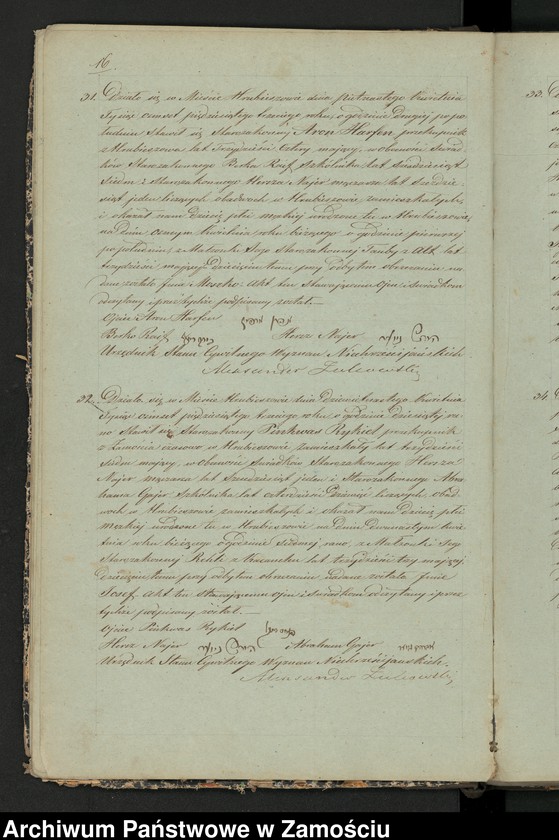 16.
31. Działo się w Mieście Hrubieszowie dnia piętnastego kwietnia
Tysiąc ośmset pięćdziesiątego trzeciego roku, o godzinie Drugiej po po-
łudniu Stawił się Starozakonny Aron Harfen, przekupnik
z Hrubieszowa lat Trzydzieści Cztery mający, w obecności Świad-
ków Starozakonnego Berka Szkolnika lat
Siedm i Starozakonnego Hersza Najer lat
jeden liczących, obudwóch w Hrubieszowie zamieszkałych,
i okazał nam Dziecię płci męzkiej urodzone tu w Hrubieszowie
na dniu ósmym kwietnia roku bieżącego o godzinie pierwszej
po południu, z Małżonki Jego Starozakonnej z lat
trzydzieści mającej. Dziecięciu temu przy odbytem obrzezaniu na-
dane zostało Imie Moszko. Akt ten Stawającemu Ojcu i Świadkom
odczytany i przez tychże podpisany został. —
Ojciec Aron Harfen
Berko Hersz Najer
Urzędnik Stanu Cywilnego Wyznań Niechrześcijańskich
Aleksander
32. Działo się w Mieście Hrubieszowie dnia kwietnia
Tysiąc ośmset pięćdziesiątego trzeciego roku o godzinie Dziesiątej ra-
no Stawił się Starozakonny Pinkwas Rykiel przekupnik
z Zamościa czasowo w Hrubieszowie zamieszkały lat trzydzieści
siedm mający, w obecności Świadków Starozakonnego Hersza
Najer lat jeden i Starozakonnego Abra-
hama Gajer Szkolnika lat Czterdzieści Dziewięć liczących, obud-
wóch w Hrubieszowie zamieszkałych i okazał nam Dziecię płci
męzkiej urodzone tu w Hrubieszowie na Dniu Dwunastym kwie-
tnia roku bieżącego o godzinie siódmej rano, z Małżonki Jego
Starozakonnej z lat trzydzieści trzy mającej.
Dziecięciu temu przy odbytem obrzezaniu nadane zostało Imie
Josef. Akt ten Stawającemu Ojcu i Świadkom odczytany i przez
tychże podpisany został. —
Ojciec Pinkwas Rykiel
Hersz Najer i Abraham Gajer
Urzędnik Stanu Cywilnego Wyznań Niechrześcijańskich.
Aleksander
33.
34
Archiwum Państwowe w Zamościu